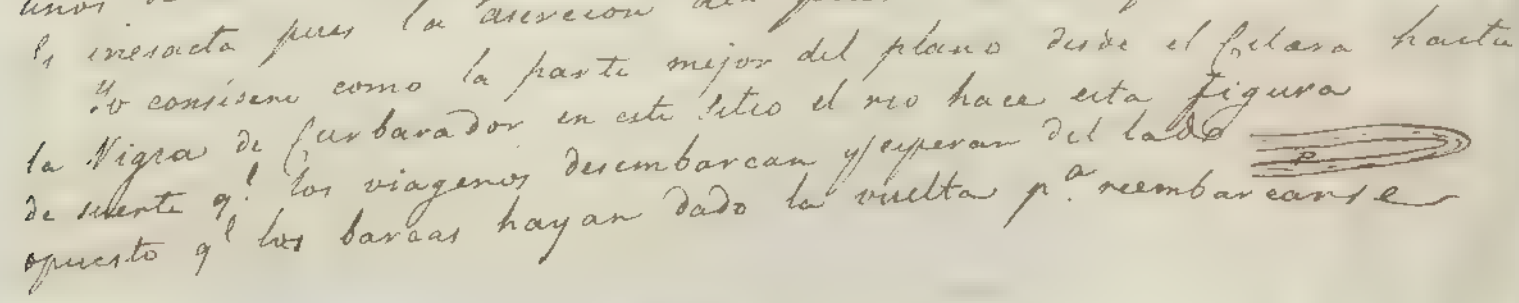 es inesacta pues la asercion
Yo considero como la parte mejor del plano desde el hasta
la Vigia de Curbarador en este sitio el rio hace esta figura
de suerte q.e los viageros desembarcan y esperan del lado
opuesto q.e las barcas hayan dado la vuelta p.a reembarcarse